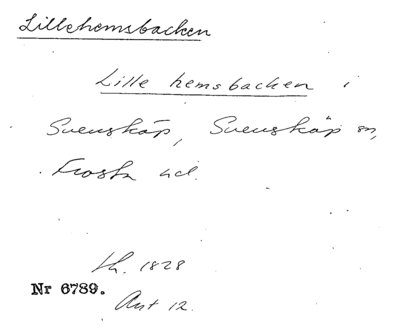 Lillehemsbacken
Lille hemsbacken i
Svensköp, Svensköp sn,
Frosta hd.
1828
Nr 6789.
Akt 12.